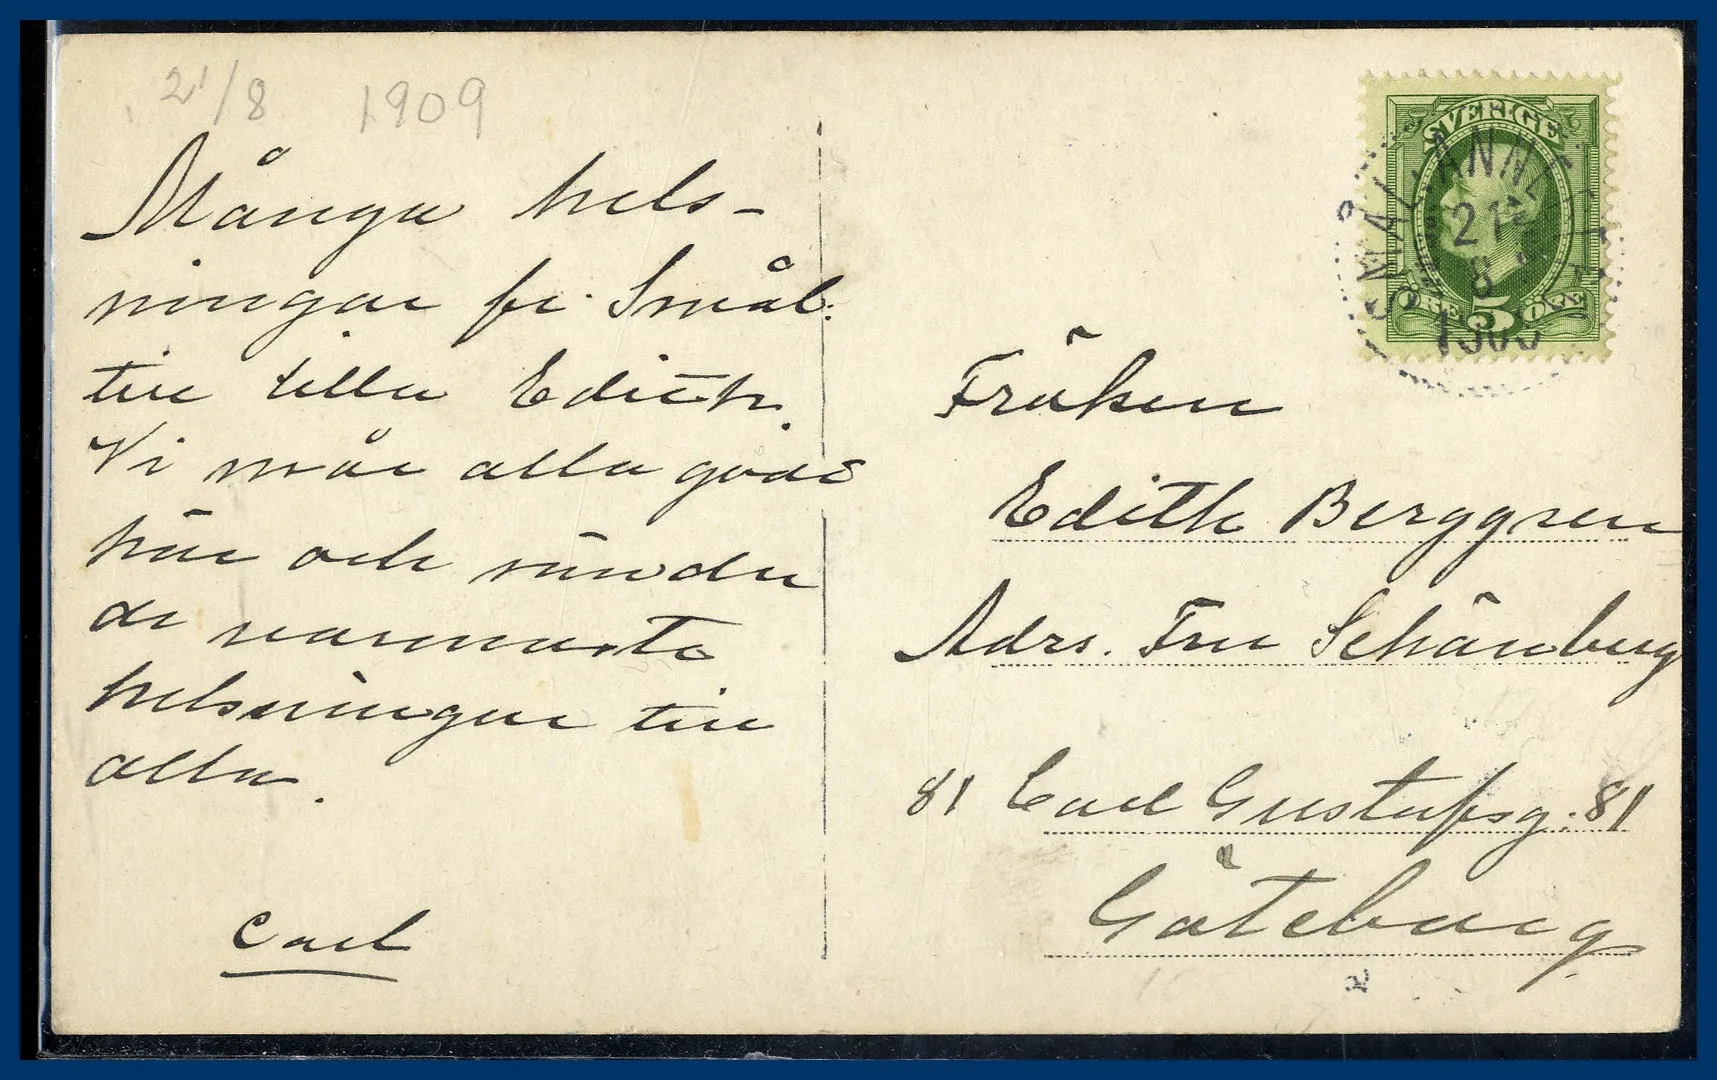 21/8 1909
Många hels-
ningar fr. Smål.
till lilla Edith.
Vi mår alla godt
här och sända
de varmaste
helsningar till
alla.
Carl
SVERIGE
SMÅLANNE
21
8
5
Fröken
Edith Berggren
Adrs. Fru Schönberg
81 Carl Gustafsg. 81
Göteborg